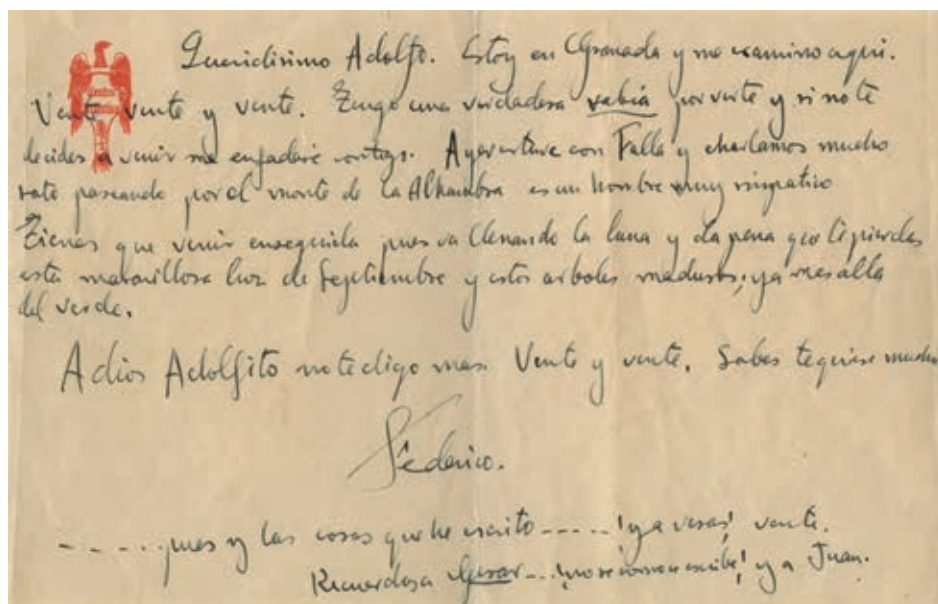 Queridisimo Adolfo. Estoy en Granada y me examino aqui.
Vente vente y vente. Tengo una verdadera rabia por verte y si no te
decides a venir me enfadaré contigo. Ayer estuve con Falla y charlamos mucho
rato paseando por el monte de la Alhambra es un hombre muy simpatico
Tienes que venir enseguida pues va llenando la luna y da pena que te pierdas
esta maravillosa luz de Septiembre y estos arboles maduros, ya mas alla
del verde.
Adios Adolfito no te digo mas. Vente y vente. Sabes te quiere mucho
Federico.
-----pues y las cosas que he escrito-----¡ya veras! vente.
Recuerdos a Cesar---¡no se como se escribe! y a Juan.